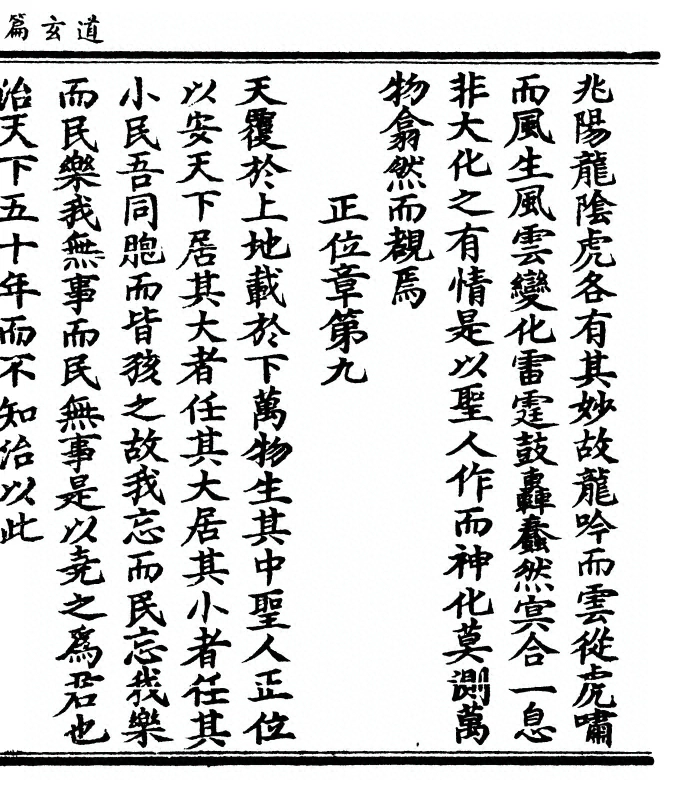 道玄篇
兆陽龍陰虎各有其妙故龍吟而雲從虎嘯
而風生風雲變化雷霆鼓轟蠢然冥合一息
非大化之有情是以聖人作而神化莫測萬
物翕然而覩焉
正位章第九
天覆於上地載於下萬物生其中聖人正位
以安天下居其大者任其大居其小者任其
小民吾同胞而皆孩之故我忘而民忘我樂
而民樂我無事而民無事是以堯之為君也
治天下五十年而不知治以此